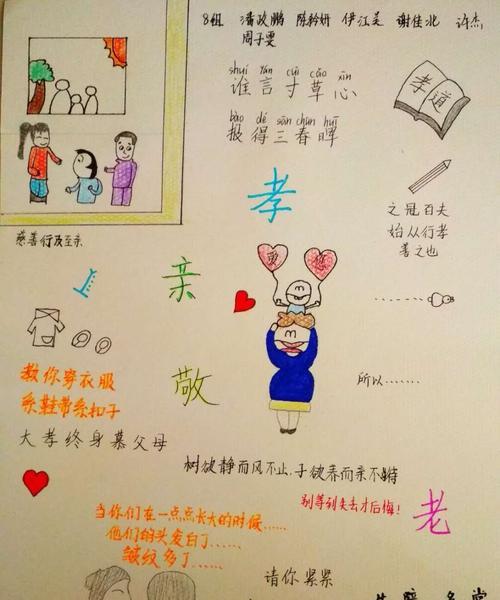 8组 潘政鹏 陈黔妍 伊江吴 谢佳兆 许杰
周子雯
shuí yán cùn cǎo xīn
谁言寸草心
bào dé sān chūn huī
报得三春晖
孝道
孝
之冠百夫
始从行孝
善之也
慈善行及至亲
亲
爱
您
教你穿衣服
系鞋带系扣子
敬
所以……
大孝终身慕父母
树欲静而风不止,子欲养而亲不待
别等到失去才后悔!
老
当你们在一点点长大的时候……
他们的头发白了……
皱纹多了……
请你紧紧